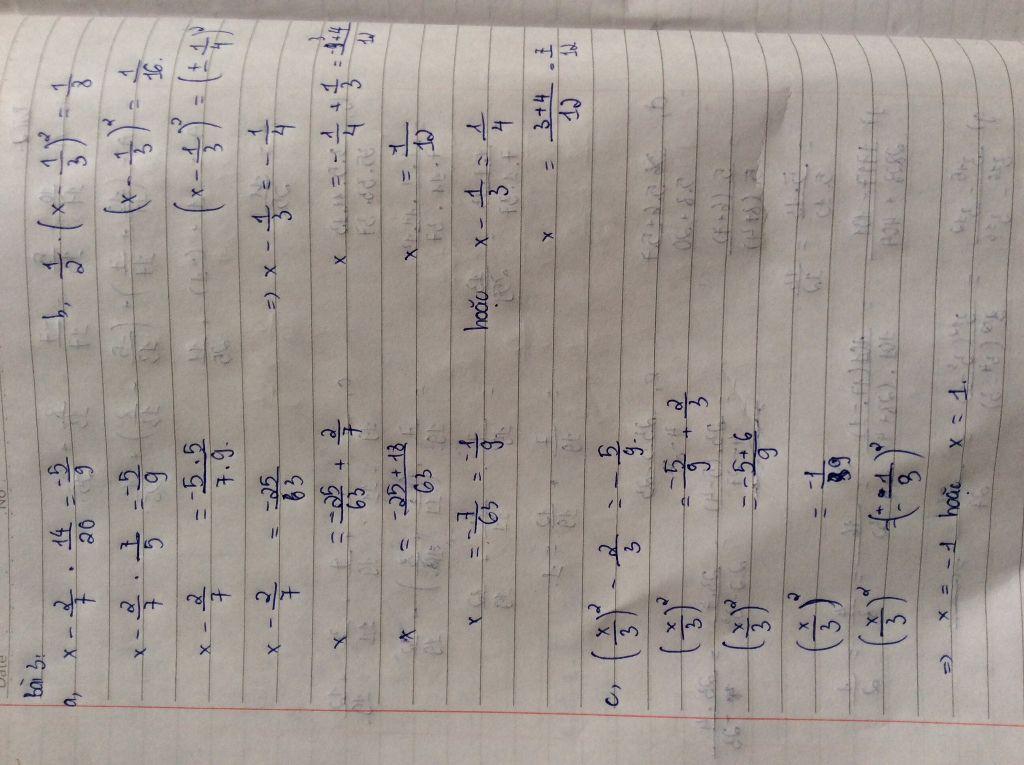 bài 3.
a, x - 2/7 . 14/20 = -5/9
x - 2/7 . 7/5 = -5/9
x - 2/7 = -5.5/7.9.
x - 2/7 = -25/63
x = -25/63 + 2/7
x = -25+18/63
x = -7/63 = -1/9
b, 1/2 . (x - 1/3)² = 1/8
(x - 1/3)² = 1/16.
(x - 1/3)² = (± 1/4)²
=> x - 1/3 = - 1/4
x = - 1/4 + 1/3 = -3+4/12
x = 1/12
hoặc x - 1/3 = 1/4
x = 3+4/12 = 7/12
c, (x/3)² - 2/3 = - 5/9.
(x/3)² = -5/9 + 2/3
(x/3)² = -5+6/9
(x/3)² = 1/9
(x/3)² = (± 1/3)²
=> x = -1 hoặc x = 1.